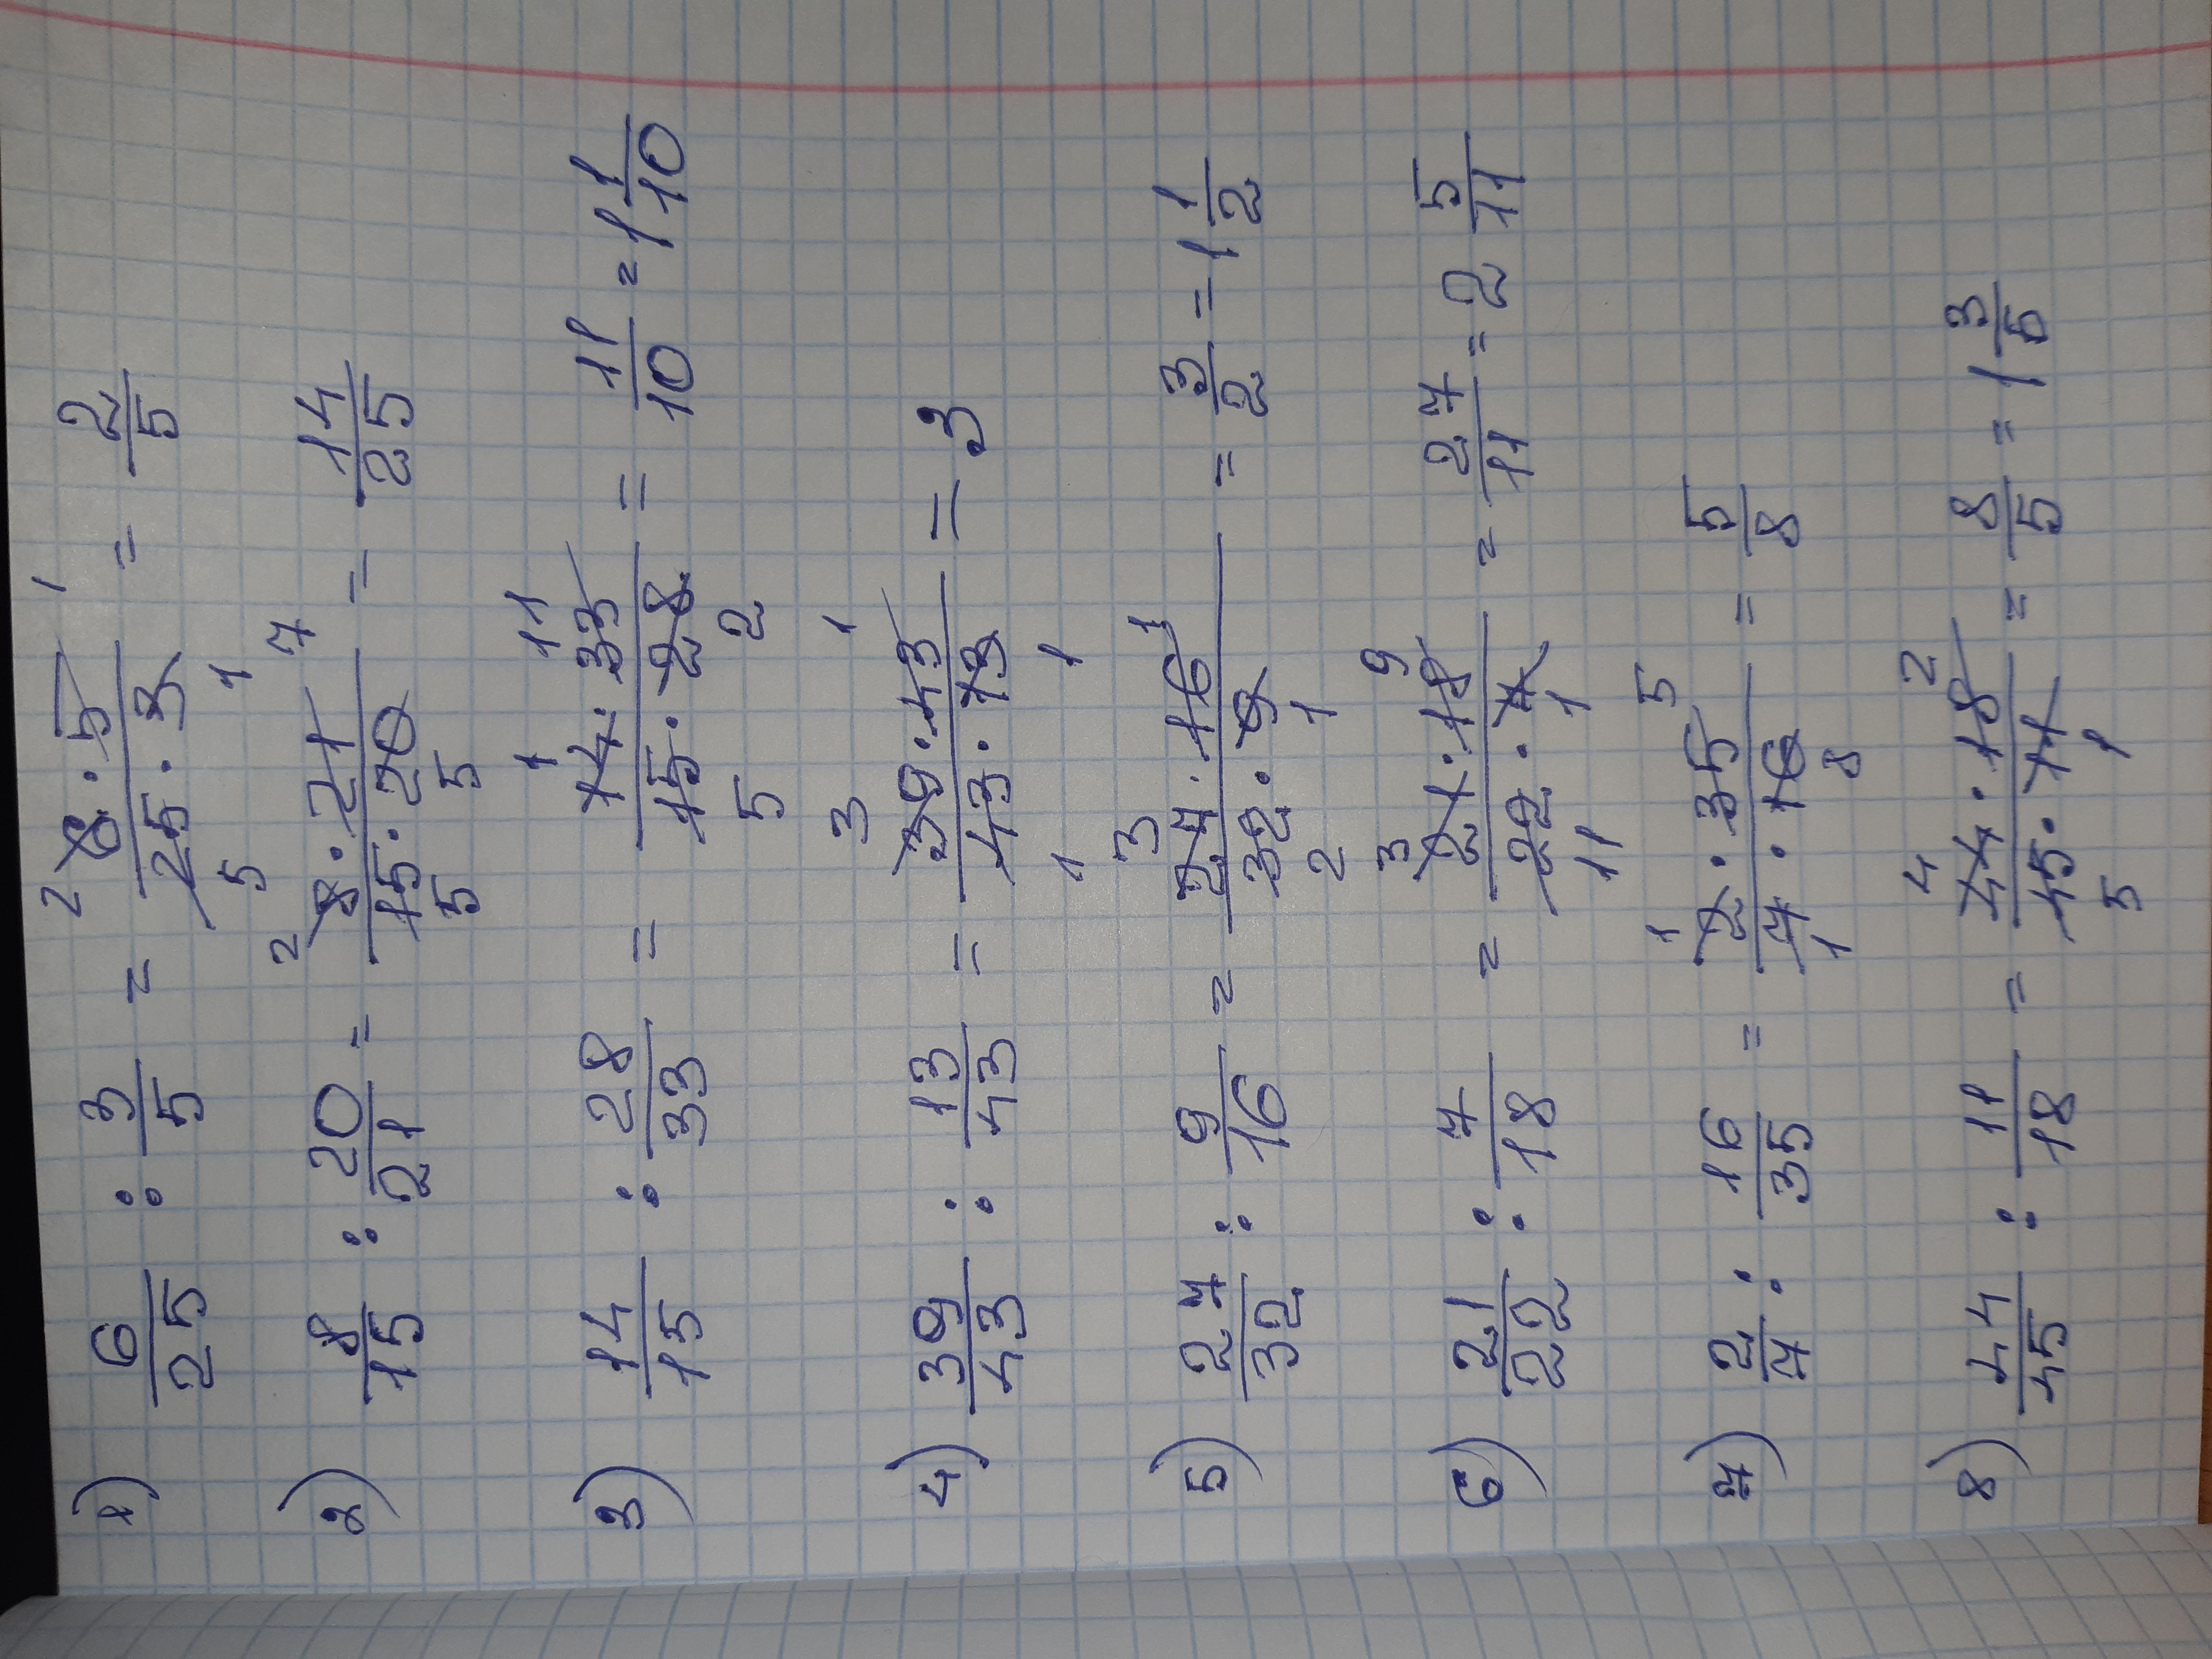 1) 6/25 : 3/5 = 6·5/25·3 = 2/5
2) 8/15 : 20/21 = 8·21/15·20 = 14/25
3) 14/15 : 28/33 = 14·33/15·28 = 11/10 = 1 1/10
4) 39/43 : 13/43 = 39·43/43·13 = 3
5) 27/32 : 9/16 = 27·16/32·9 = 3/2 = 1 1/2
6) 21/22 : 7/18 = 21·18/22·7 = 27/11 = 2 5/11
7) 2/7 : 16/35 = 2·35/7·16 = 5/8
8) 44/45 : 11/18 = 44·18/45·11 = 8/5 = 1 3/5